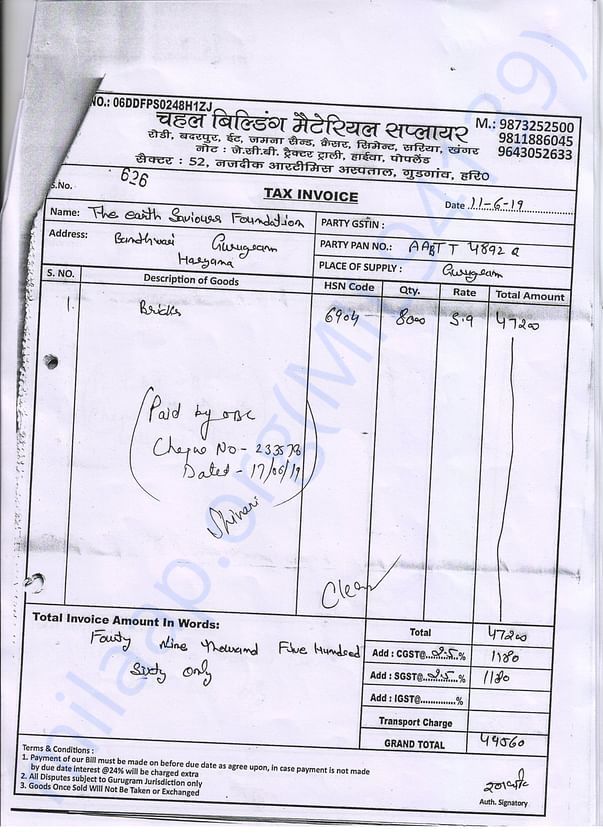 NO.: 06DDFPS0248H1ZJ
चहल बिल्डिंग मैटेरियल सप्लायर
M.: 9873252500
9811886045
9643052633
रोडी, बदरपुर, ईंट, जमना सैन्ड, क्रैशर, सिमेन्ट, सरिया, खंगर
नोट : जे.सी.बी. ट्रैक्टर ट्राली, हाईवा, पोपलैंड
सैक्टर : 52, नजदीक आरटीमिस अस्पताल, गुड़गांव, हरि0
S.No. 626
TAX INVOICE
Date 11-6-19
Name: The earth Saviours Foundation
Address: Bandhwari Gurugram
Haryana
PARTY GSTIN :
PARTY PAN NO.: AABTT4892Q
PLACE OF SUPPLY : Gurugram
S. NO. Description of Goods HSN Code Qty. Rate Total Amount
1. Bricks 6904 8000 5.9 47200
(Paid by OBC
Cheque No - 233578
Dated - 17/06/19)
Clear
Total Invoice Amount In Words:
Fourty Nine Thousand Five Hundred
Sixty Only
Total 47200
Add : CGST@ 2.5 % 1180
Add : SGST@ 2.5 % 1180
Add : IGST@.............%
Transport Charge
GRAND TOTAL 49560
Terms & Conditions :
1. Payment of our Bill must be made on before due date as agree upon, in case payment is not made
by due date Interest @24% will be charged extra
2. All Disputes subject to Gurugram Jurisdiction only
3. Goods Once Sold Will Not Be Taken or Exchanged
Auth. Signatory